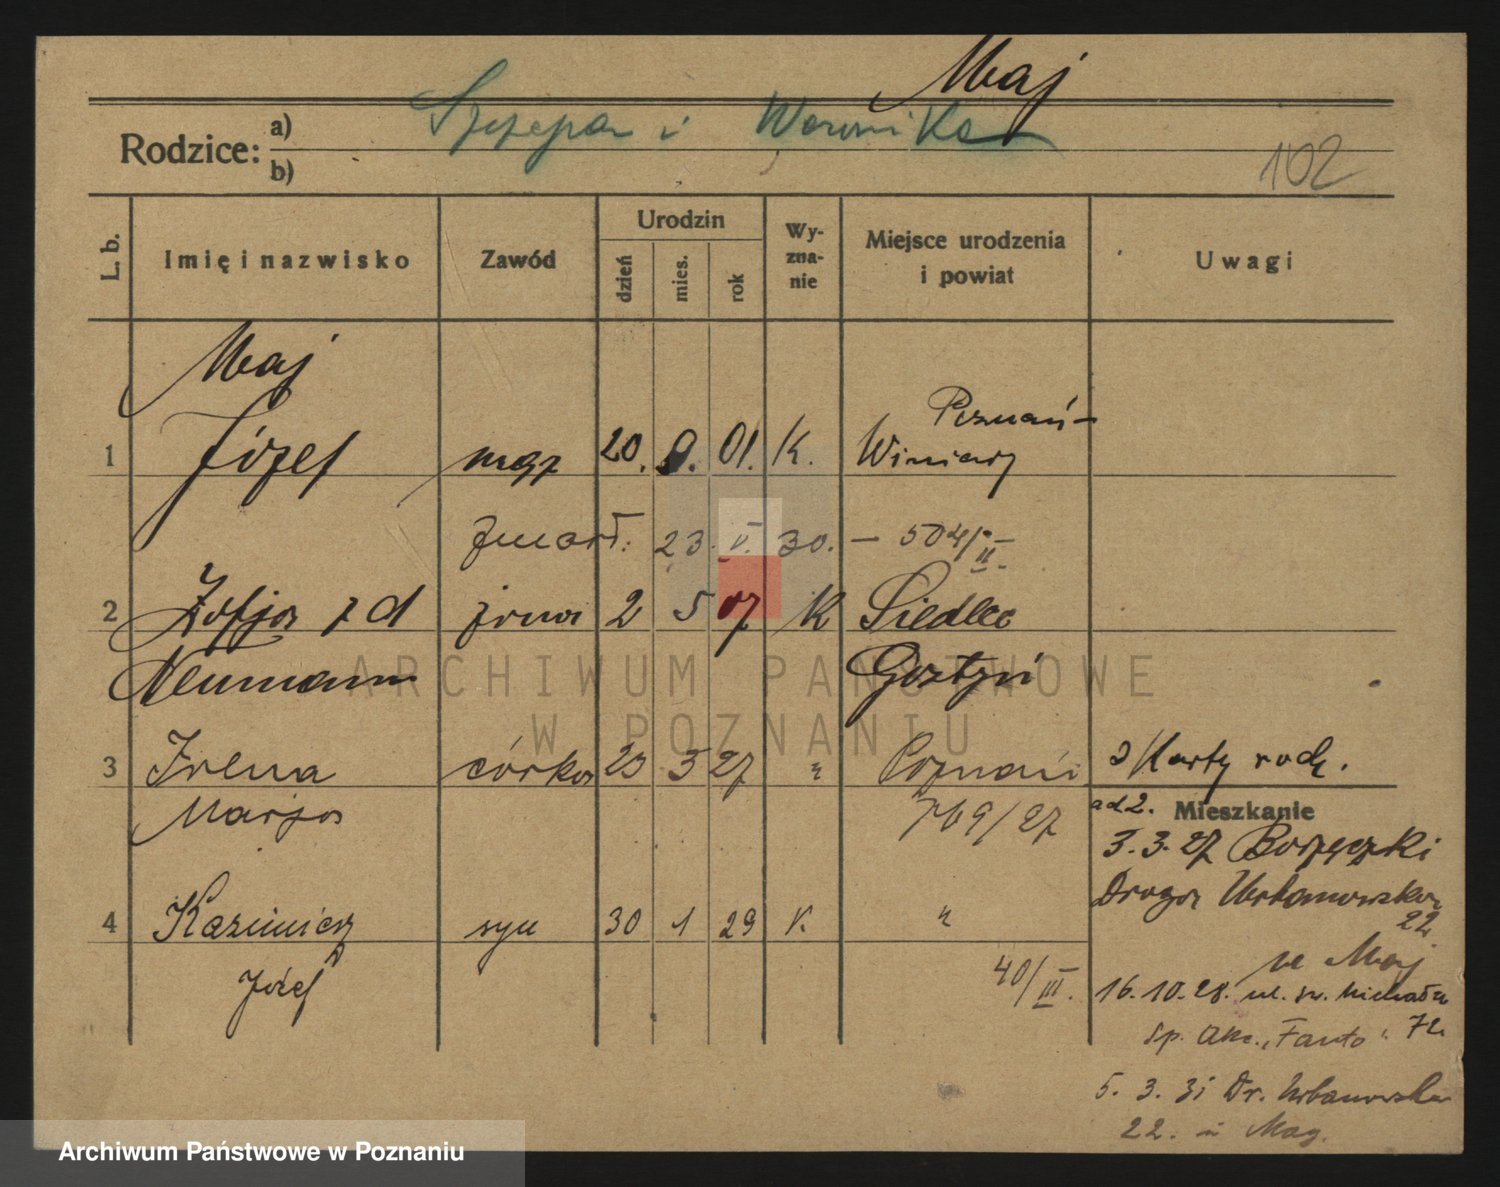 Maj
Rodzice: a) Szczepan i Weronika
b)
102
L. b.
Imię i nazwisko
Zawód
Urodzin
dzień
mies.
rok
Wy-
zna-
nie
Miejsce urodzenia
i powiat
Uwagi
Maj
Poznań-
1 Józef 20. 9. 01. K. Winiary
zmarł: 23. V. 30. – 504/II –
2 Zofja z d żona 2 5 07 K Siedlec
Neumann Gostyń
3 Irena córka 23 3 27 " Poznań 2 Karty rodz.
Marja 769/27
ad 2. Mieszkanie
3.3.27 Borzęczki
Droga Urbanowska
22
4 Kazimierz syn 30 1 29 K. "
Józef 40/III.
Maj
16.10.28. ul. św. Michała
72
Sp. Akc. „Fanto"
5. 3. 31 Dr. Urbanowska
22.
ARCHIWUM PAŃSTWOWE
W POZNANIU
Archiwum Państwowe w Poznaniu